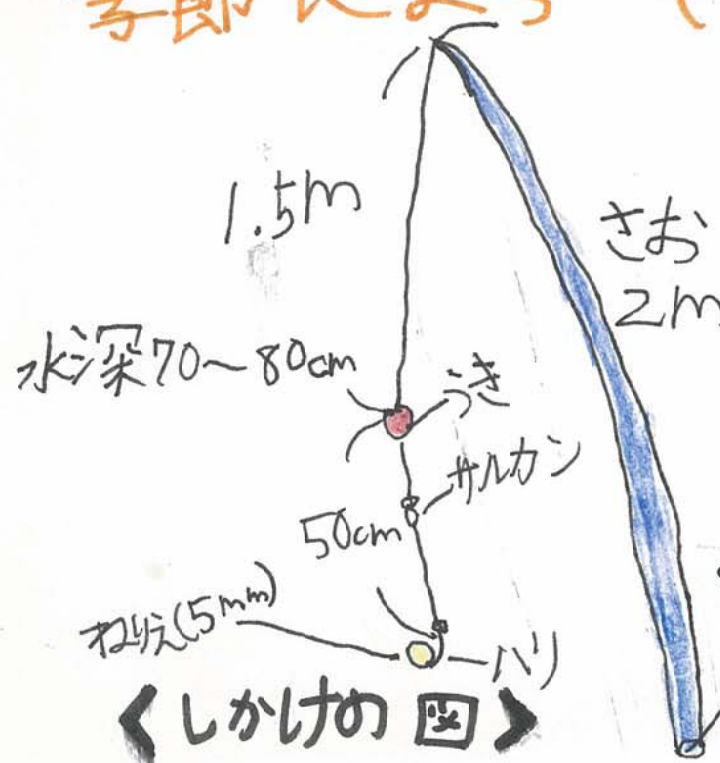 季節によって
1.5m
さお
2m
水深70〜80cm
うき
サルカン
50cm
ねりえ(5mm)
ハリ
<しかけの図>